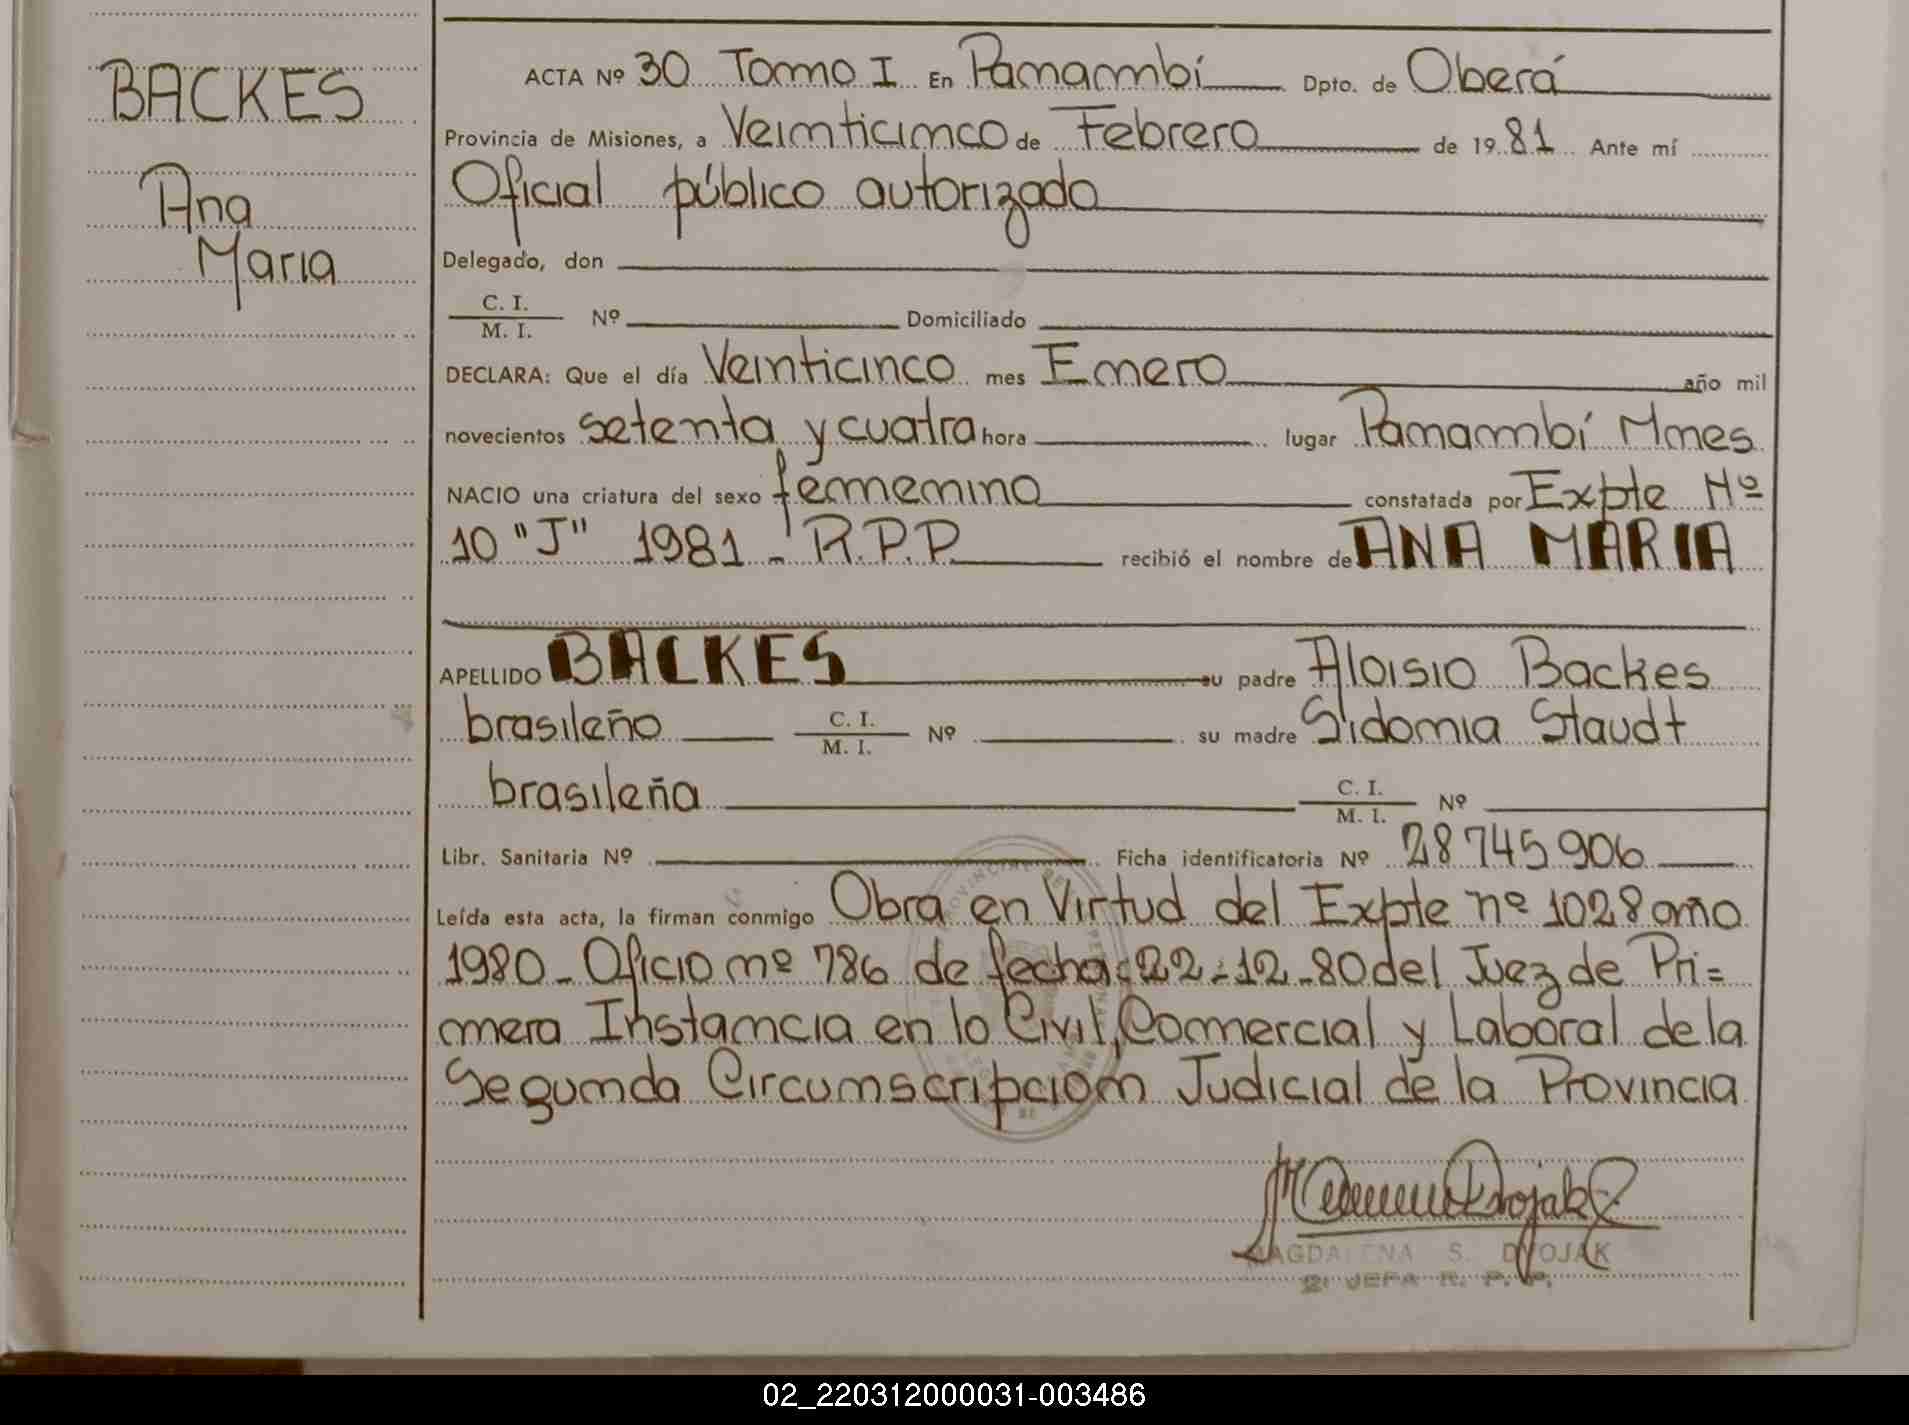 BACKES
Ana
Maria
ACTA Nº 30 Tomo I En Panambí Dpto. de Oberá
Provincia de Misiones, a Veinticinco de Febrero de 1981 Ante mí
Oficial público autorizado
Delegado, don
C. I.
M. I. Nº Domiciliado
DECLARA: Que el día Veinticinco mes Enero año mil
novecientos setenta y cuatro hora lugar Panambí Mnes
NACIO una criatura del sexo femenino constatada por Expte Nº
10 "J" 1981 - R.P.P. recibió el nombre de ANA MARIA
APELLIDO BACKES su padre Aloisio Backes
brasileño C. I. M. I. Nº su madre Sidonia Staudt
brasileña C. I. M. I. Nº
Libr. Sanitaria Nº Ficha identificatoria Nº 28745906
Leída esta acta, la firman conmigo Obra en Virtud del Expte nº 1028 año
1980 - Oficio nº 786 de fecha: 22-12-80 del Juez de Pri=
mera Instancia en lo Civil, Comercial y Laboral de la
Segunda Circunscripcion Judicial de la Provincia
MAGDALENA S. DVOJAK
2ª JEFA R. P. P.
02_220312000031-003486